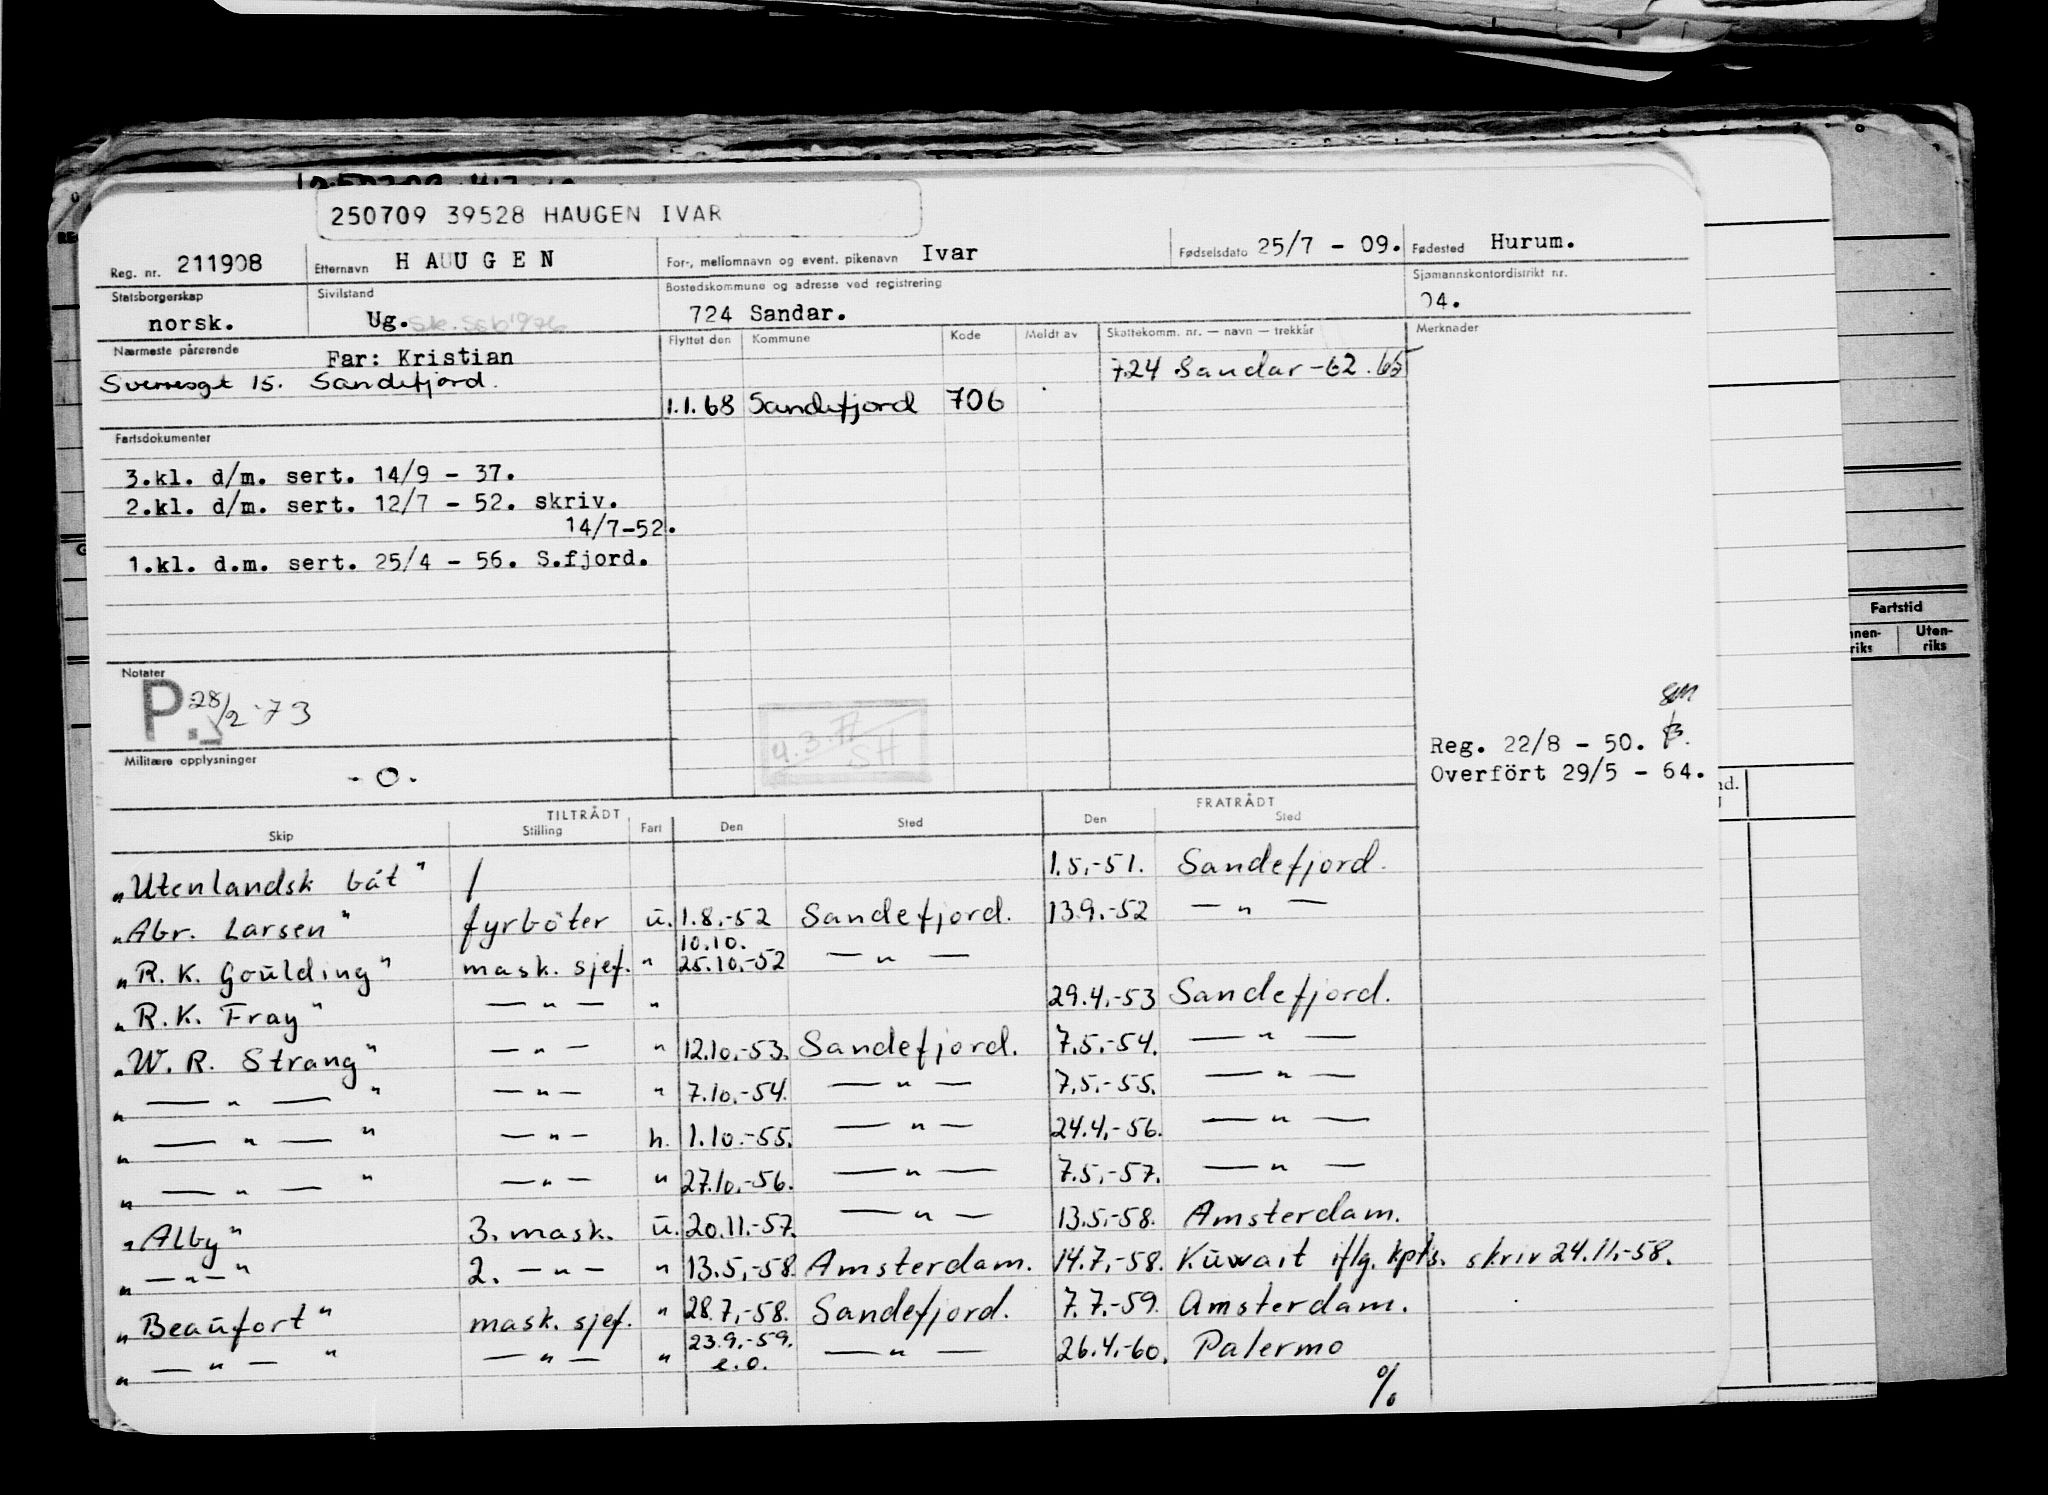 250709 39528 HAUGEN IVAR
Reg. nr. 211908 Etternavn HAUGEN For-, mellomnavn og event. pikenavn Ivar Fødselsdato 25/7 - 09. Fødested Hurum.
Statsborgerskap norsk. Sivilstand Ug. Bostedskommune og adresse ved registrering 724 Sandar. Sjømannskontordistrikt nr. 04.
Nærmeste pårørende Far: Kristian
Sverresgt 15. Sandefjord.
Flyttet den Kommune Kode Meldt av Skattekomm. nr. — navn — trekkår Merknader
724 Sandar -62. 65
1.1.68 Sandefjord 706
Fartsdokumenter
3.kl. d/m. sert. 14/9 - 37.
2.kl. d/m. sert. 12/7 - 52. skriv.
14/7-52.
1.kl. d.m. sert. 25/4 - 56. S.fjord.
Notater
P. 28/2 '73
4.3.77
SH
Militære opplysninger
- 0.
Reg. 22/8 - 50.
Overført 29/5 - 64.
Fartstid
Uten-
riks
TILTRÅDT FRATRÅDT
Skip Stilling Fart Den Sted Den Sted
"Utenlandsk båt" / 1.5.-51. Sandefjord.
"Abr. Larsen" fyrböter u. 1.8.-52 Sandefjord. 13.9.-52 — " —
10.10.
"R. K. Goulding" mask. sjef. " 25.10.-52 — " —
"R. K. Fray" — " — " 29.4.-53 Sandefjord.
"W. R. Strang" — " — " 12.10.-53. Sandefjord. 7.5.-54. — " —
" — " — " — " — " 7.10.-54. — " — 7.5.-55. — " —
" — " — " — " — h. 1.10.-55. — " — 24.4.-56. — " —
" — " — " — " — " 27.10.-56. — " — 7.5.-57. — " —
"Alby" 3. mask. u. 20.11.-57. — " — 13.5.-58. Amsterdam.
" — " — " 2. — " — " 13.5.-58. Amsterdam. 14.7.-58. Kuwait iflg. kpts. skriv 24.11.-58.
"Beaufort" mask. sjef. " 28.7.-58. Sandefjord. 7.7.-59. Amsterdam.
" — " — " — " — " 23.9.-59. e.o. — " — 26.4.-60. Palermo
%